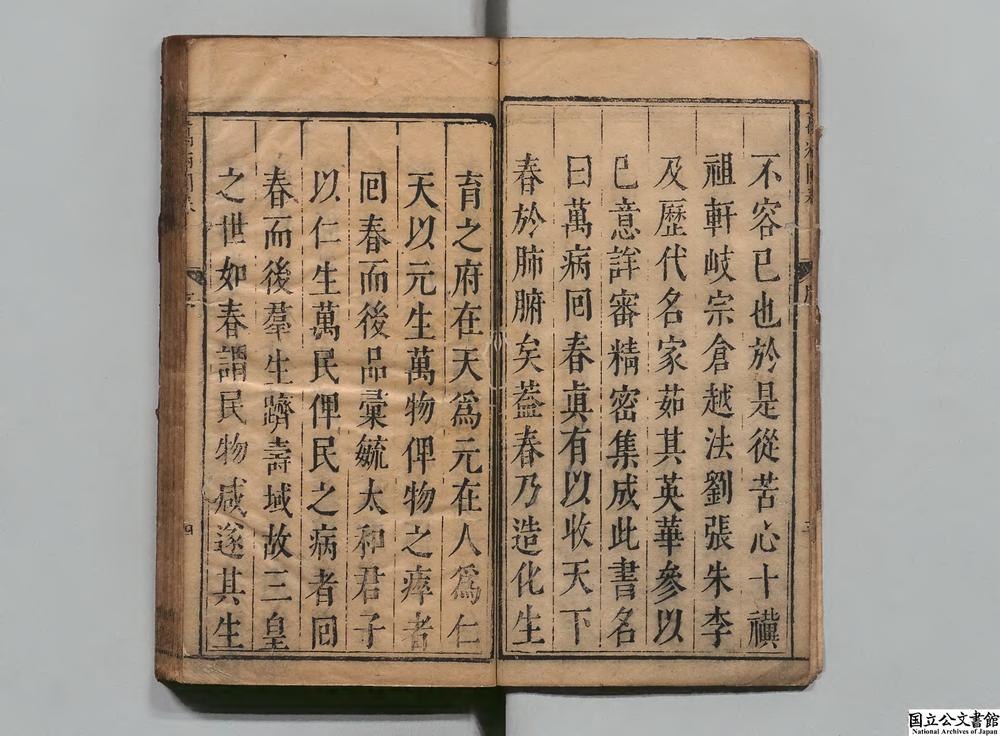 不容已也於是從苦心十禩
祖軒岐宗倉越法劉張朱李
及歷代名家茹其英華參以
已意詳審精密集成此書名
曰萬病回春眞有以收天下
春於肺腑矣葢春乃造化生
育之府在天爲元在人爲仁
天以元生萬物俾物之瘁者
回春而後品彚毓太和君子
以仁生萬民俾民之病者回
春而後羣生躋壽域故三皇
之世如春謂民物咸遂其生
萬病回春
序
三
四
国立公文書館
National Archives of Japan